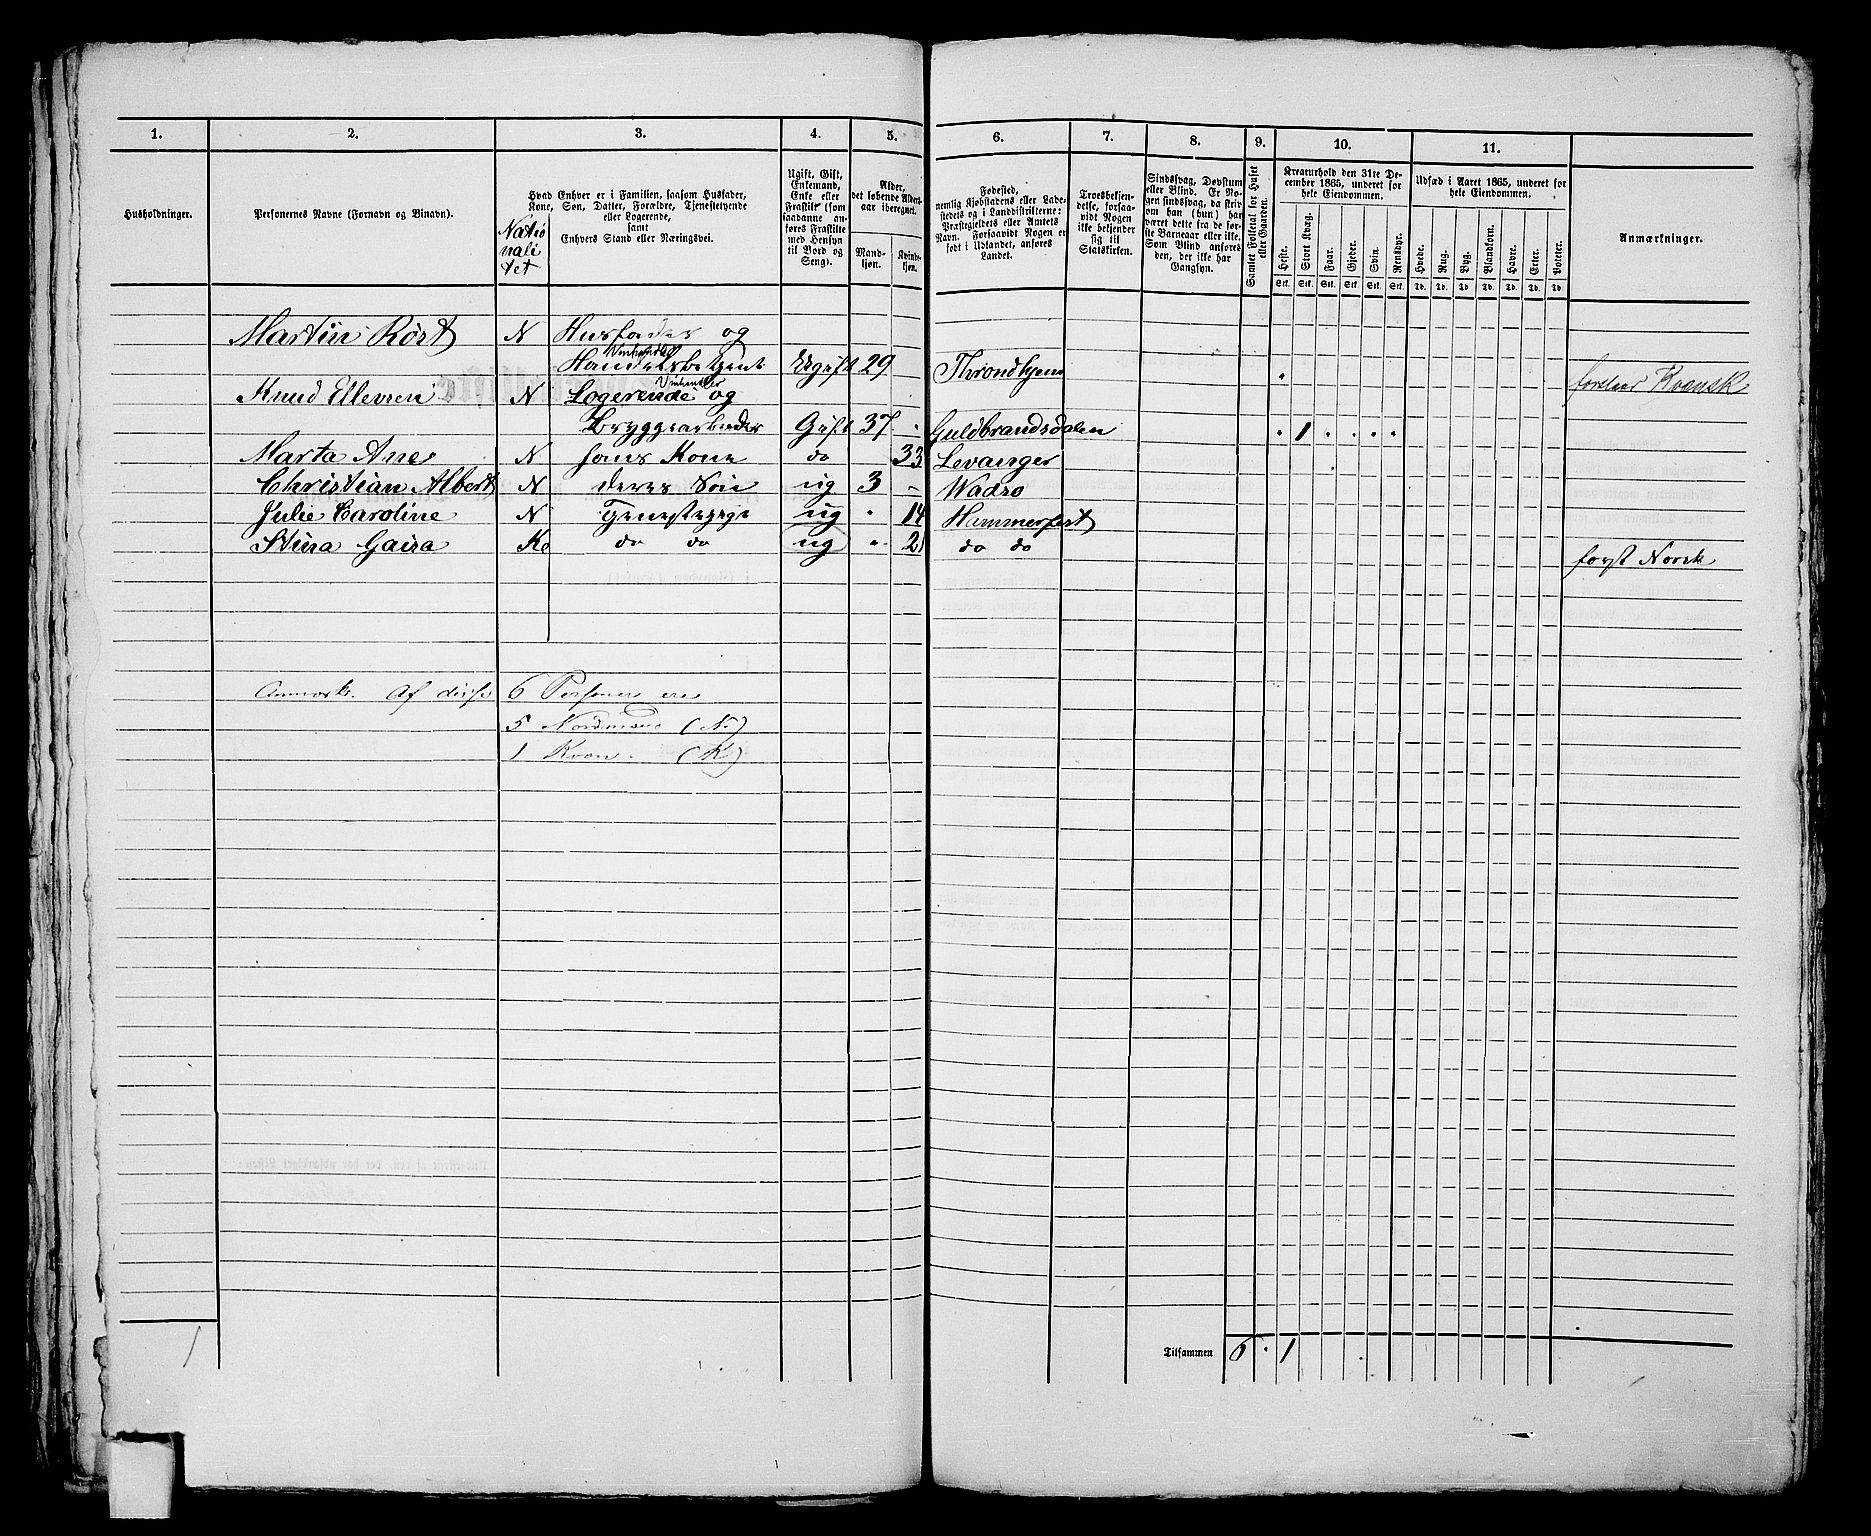 1. 2. 3. 4. 5. 6. 7. 8. 9. 10. 11.
Husholdninger.
Personernes Navne (Fornavn og Binavn).
Natio
nali
tet
Hvad Enhver er i Familien, saasom Husfader,
Kone, Søn, Datter, Forældre, Tjenestetyende
eller Logerende,
samt
Enhvers Stand eller Næringsvei.
Ugift, Gift,
Enkemand,
Enke eller
Fraskilt (som
saadanne an-
føres Fraskilte
med Hensyn
til Bord og
Seng).
Alder,
det løbende Alders-
aar iberegnet.
Mand-
kjøn.
Kvinde-
kjøn.
Fødested,
nemlig Kjøbstadens eller Lade-
stedets og i Landdistrikterne:
Præstegjeldets eller Amtets
Navn. Forsaavidt Nogen er
født i Udlandet, anføres
Landet.
Troesbekjen-
delse, forsaa-
vidt Nogen
ikke bekjender
sig til
Statskirken.
Sindssvag, Døvstum
eller Blind. Er No-
gen sindssvag, da skriv
om han (hun) har
været dette fra de før-
ste Barneaar eller ikke.
Som Blind anføres
den, der ikke har
Gangsyn.
Samlet Folketal for Huset
eller Gaarden.
Kreaturhold den 31te De-
cember 1865, underet for
hele Eiendommen.
Heste.
Stort Kvæg.
Faar.
Gjeder.
Svin.
Rensdyr.
Stk. Stk. Stk. Stk. Stk. Stk.
Udsæd i Aaret 1865, underet for
hele Eiendommen.
Hvede.
Rug.
Byg.
Blandkorn.
Havre.
Erter.
Poteter.
Td. Td. Td. Td. Td. Td. Td.
Anmærkninger.
Martin Rört N Husfader og
Handelsbetjent Ugift 29 Throndhjem
forstaar Kvænsk
Knud Ellevsen N Logerende og
Bryggearbeider Gift 37 Guldbrandsdalen 1
Marta Ane N hans Kone do 33 Levanger
Christian Albert N deres Sön ug 3 Wadsø
Julie Caroline N Tjenestepige ug 14 Hammerfest
Stina Gaira Kv do do ug 21 do do forst Norsk
Anmærk. Af disse 6 Personer ere
5 Nordmænd (N)
1 Kvæn (K)
1
Tilsammen 6 1